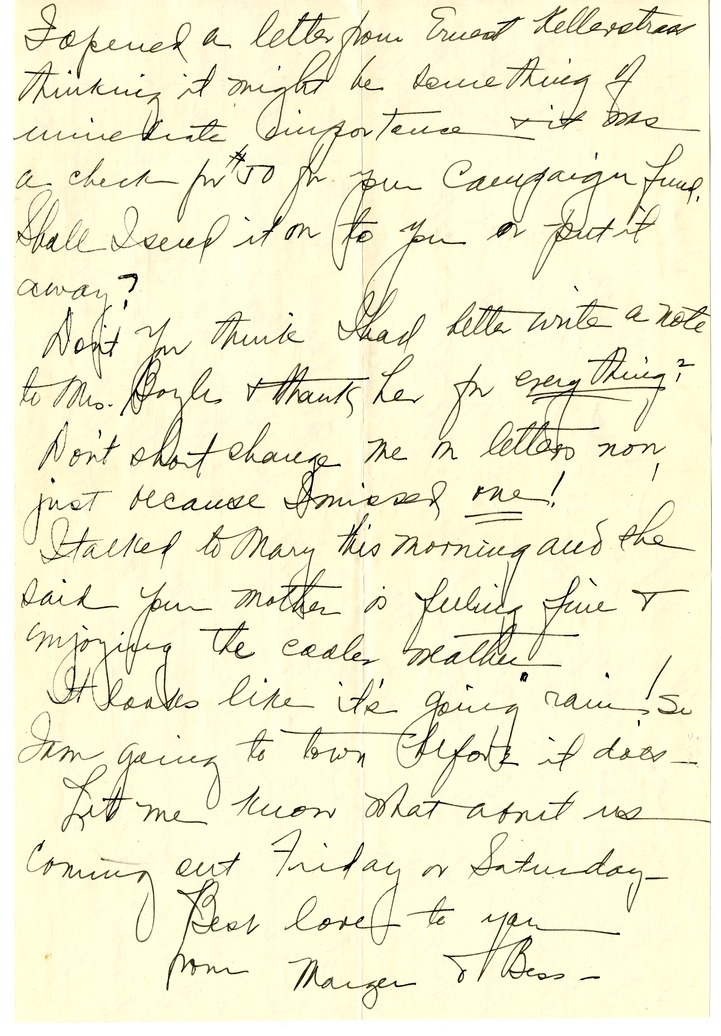 I opened a letter from Ernest Kellerstrass
thinking it might be something of
immediate importance & it was
a check for $50 for your Campaign fund.
Shall I send it on to you or put it
away?
Don't you think I had better write a note
to Mrs. Boyle & thank her for everything?
Don't short change me on letters now,
just because I missed one!
I talked to Mary this morning and she
said your mother is feeling fine &
enjoying the cooler weather
It looks like it's going " rain! So
I am going to town before it does—
Let me know what about us
coming out Friday or Saturday—
Best love to you
from Marger & Bess—